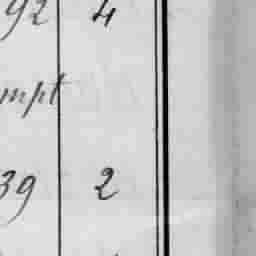 92 4
mpt
39 2